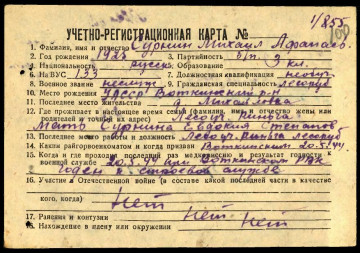 1/855
УЧЕТНО-РЕГИСТРАЦИОННАЯ КАРТА №
1. Фамилия, имя и отчество Сурнин Михаил Афанас.
2. Год рождения 1927 3. Партийность б/п
4. Национальность русск. 5. Образование 3 кл.
6. № ВУС 133 7. Должностная квалификация необуч.
8. Военное звание 9. Гражданская специальность лесоруб
10. Место рождения УАССР Воткинский р-н
11. Последнее место жительства д. Михайловка
12. Где проживает в настоящее время семья (фамилия, имя и отчество жены или
родителей и точный их адрес)
Мать Сурнина Евдокия Степанов
13. Последнее место работы и должность лесоруб
14. Каким райгорвоенкоматом и когда призван Воткинским 20.5.44.
15. Когда и где проходил последний раз медкомиссию и результат годности к
военной службе 20.5.44 Воткинском РВК
годен к строевой службе
16. Участие в Отечественной войне (в составе какой последней части в качестве
кого, когда) Нет
17. Ранения и контузии Нет
18. Нахождение в плену или окружении Нет